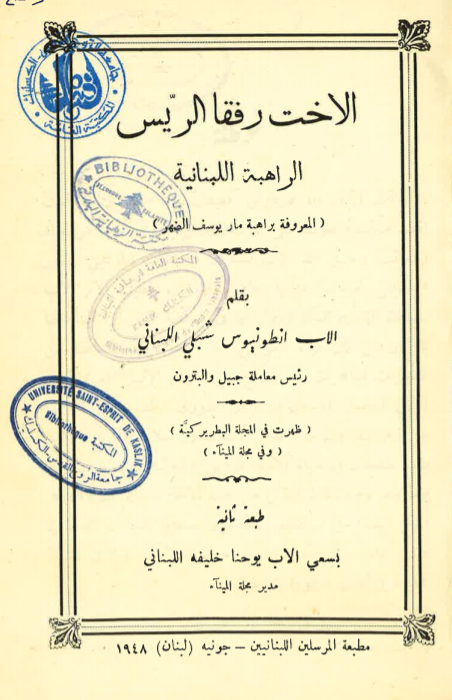 الاخت رفقا الريّس
الراهبة اللبنانية
( المعروفة براهبة مار يوسف الضهر )
بقلم
الاب انطونيوس شبلي اللبناني
رئيس معاملة جبيل والبترون
( ظهرت في المجلة البطريركيَّة )
( وفي مجلة المينآء )
طبعة ثانية
بسعي الاب يوحنا خليفه اللبناني
مدير مجلة المينآء
مطبعة المرسلين اللبنانيين – جونيه (لبنان) ١٩٤٨
BIBLIOTHEQUE
UNIVERSITÉ SAINT-ESPRIT DE KASLIK
Bibliothèque المكتبة
جامعة الروح القدس الكسليك